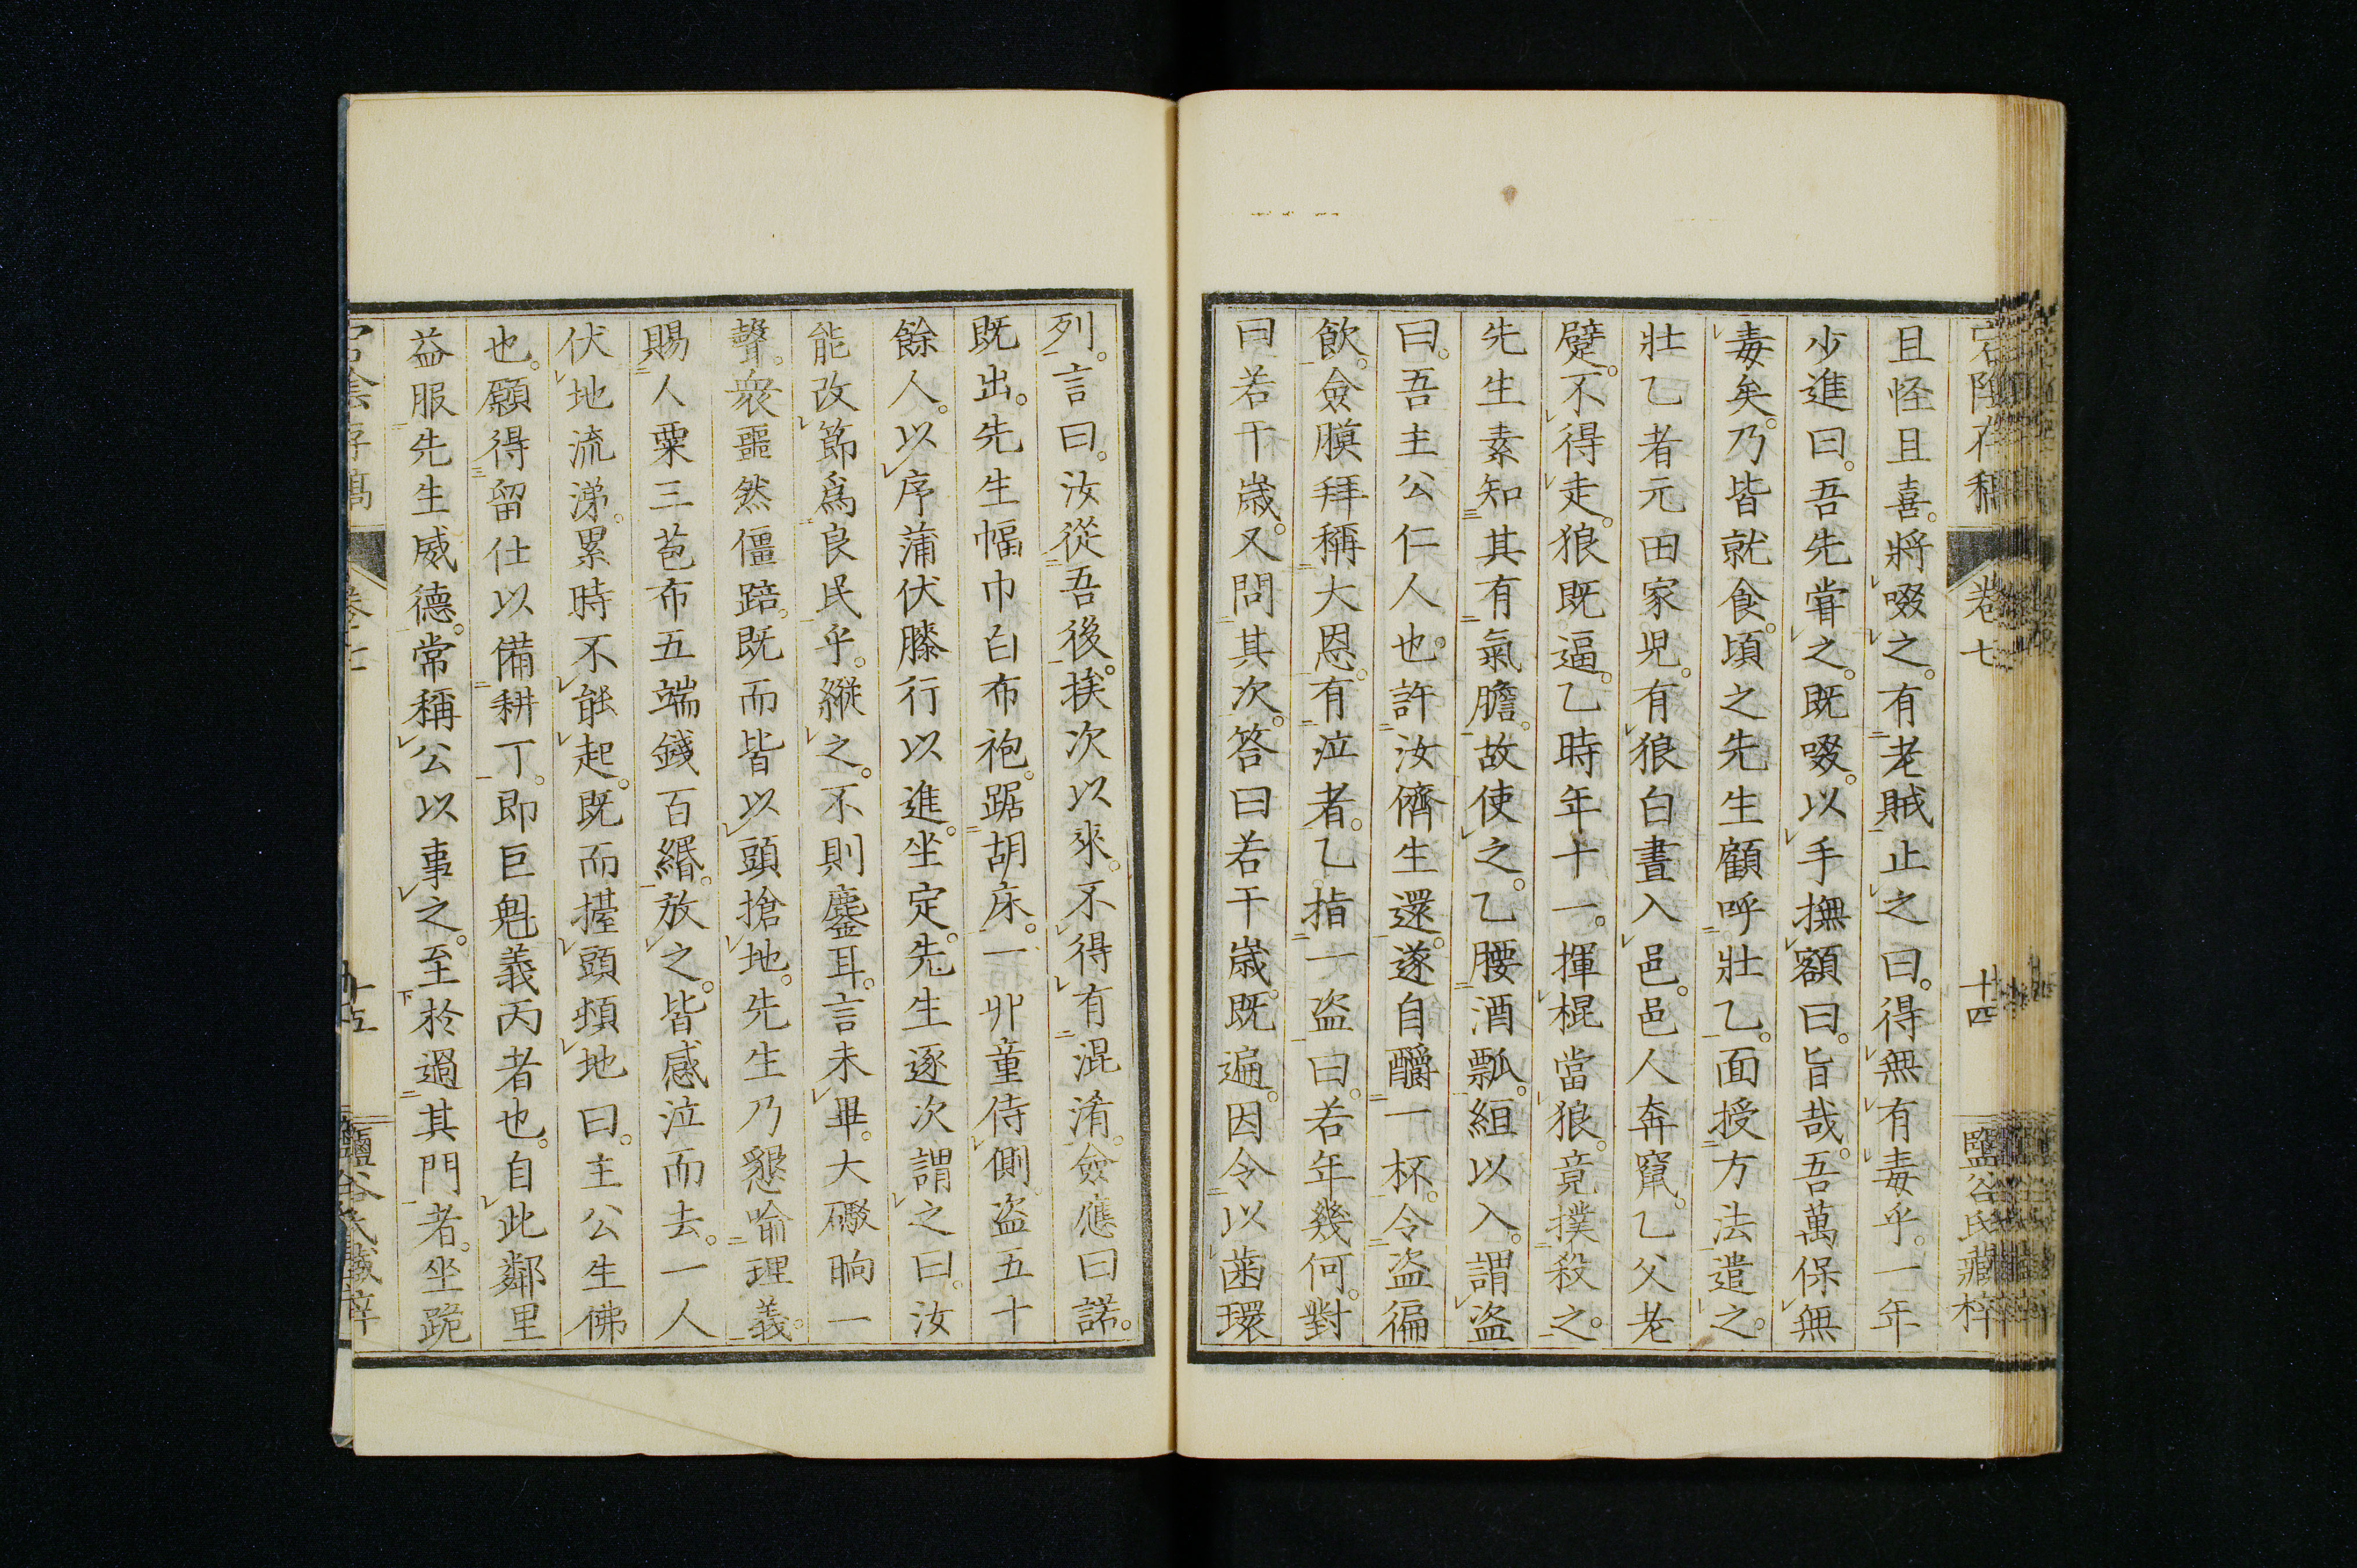 宕陰存稿 卷七 十四 鹽谷氏藏梓
且怪且喜。將啜之。有老賊止之曰。得無有毒乎。一年
少進曰。吾先嘗之。既啜。以手撫額曰。旨哉。吾萬保無
毒矣。乃皆就食。頃之先生顧呼壯乙。面授方法遣之。
壯乙者元田家児。有狼白晝入邑。邑人奔竄。乙父老
躄。不得走。狼既逼。乙時年十一。揮棍當狼。竟撲殺之。
先生素知其有氣膽。故使之。乙腰酒瓢。組以入。謂盗
曰。吾主公仁人也。許汝儕生還。遂自釂一杯。令盗徧
飲。僉膜拜稱大恩。有泣者。乙指一盗曰。若年幾何。對
曰若干歳。又問其次。答曰若干歳。既遍。因令以歯環
列。言曰。汝從吾後。挨次以來。不得有混淆。僉應曰諾。
既出。先生幅巾白布袍。踞胡床。一丱童侍側。盗五十
餘人。以序蒲伏膝行以進。坐定。先生逐次謂之曰。汝
能改節爲良民乎。縱之。不則鏖耳。言未畢。大礟晌一
聲。衆噩然僵踣。既而皆以頭搶地。先生乃懇喻理義。
賜人粟三苞布五端錢百緡。放之。皆感泣而去。一人
伏地流涕。累時不能起。既而擡頭頓地曰。主公生佛
也。願得留仕以備耕丁。即巨魁義丙者也。自此鄰里
益服先生威德。常稱公以事之。至於過其門者。坐跪
宕陰存稿 卷七 十五 鹽谷氏藏梓